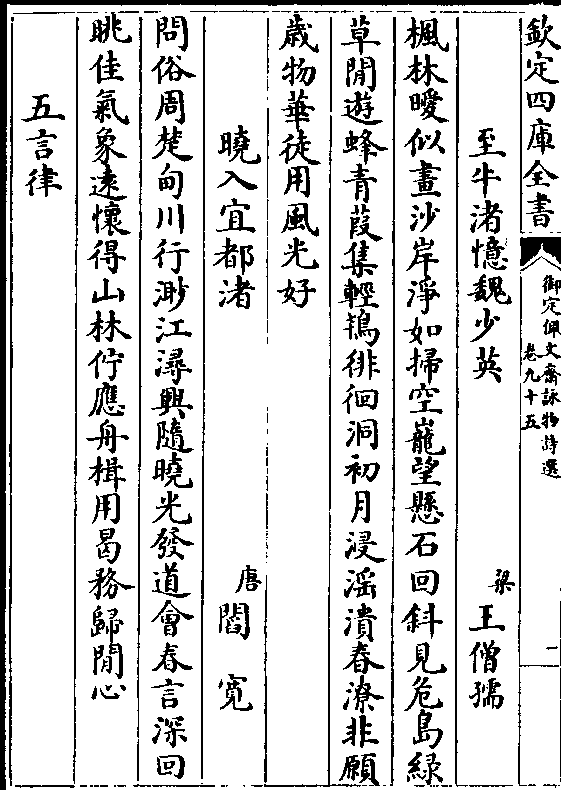 欽定四庫全書
御定佩文齋詠物詩選
卷九十五
一
至牛渚憶魏少英
梁
王僧孺
楓林曖似畫沙岸淨如掃空巃望懸石回斜見危島綠
草閒遊蜂青葭集輕鴇徘徊洞初月浸滛潰春潦非願
歲物華徒用風光好
曉入宜都渚
唐
閻寛
問俗周楚甸川行渺江潯興隨曉光發道會春言深回
眺佳氣象遠懷得山林佇應舟楫用曷務歸閒心
五言律